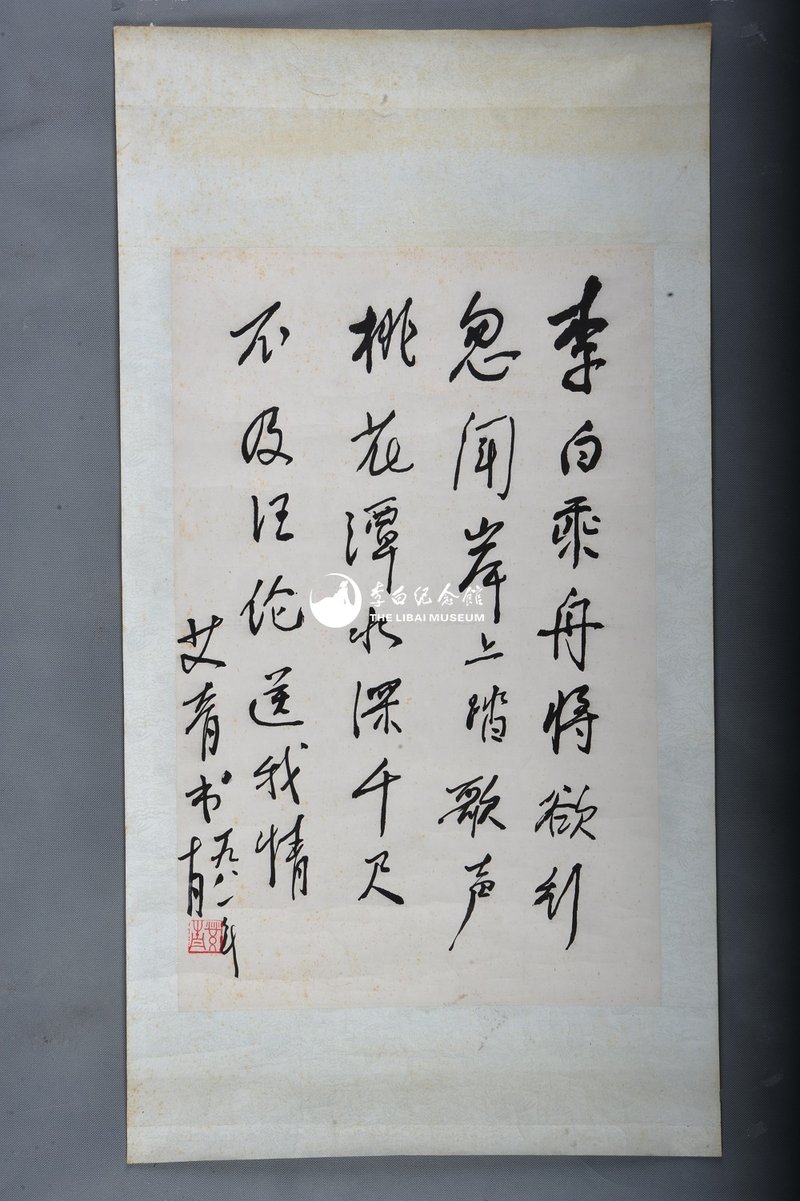 李白乘舟将欲行
忽闻岸上踏歌声
桃花潭水深千尺
不及汪伦送我情
艾青书
一九八一年
十月
李白纪念館
THE LIBAI MUSEUM